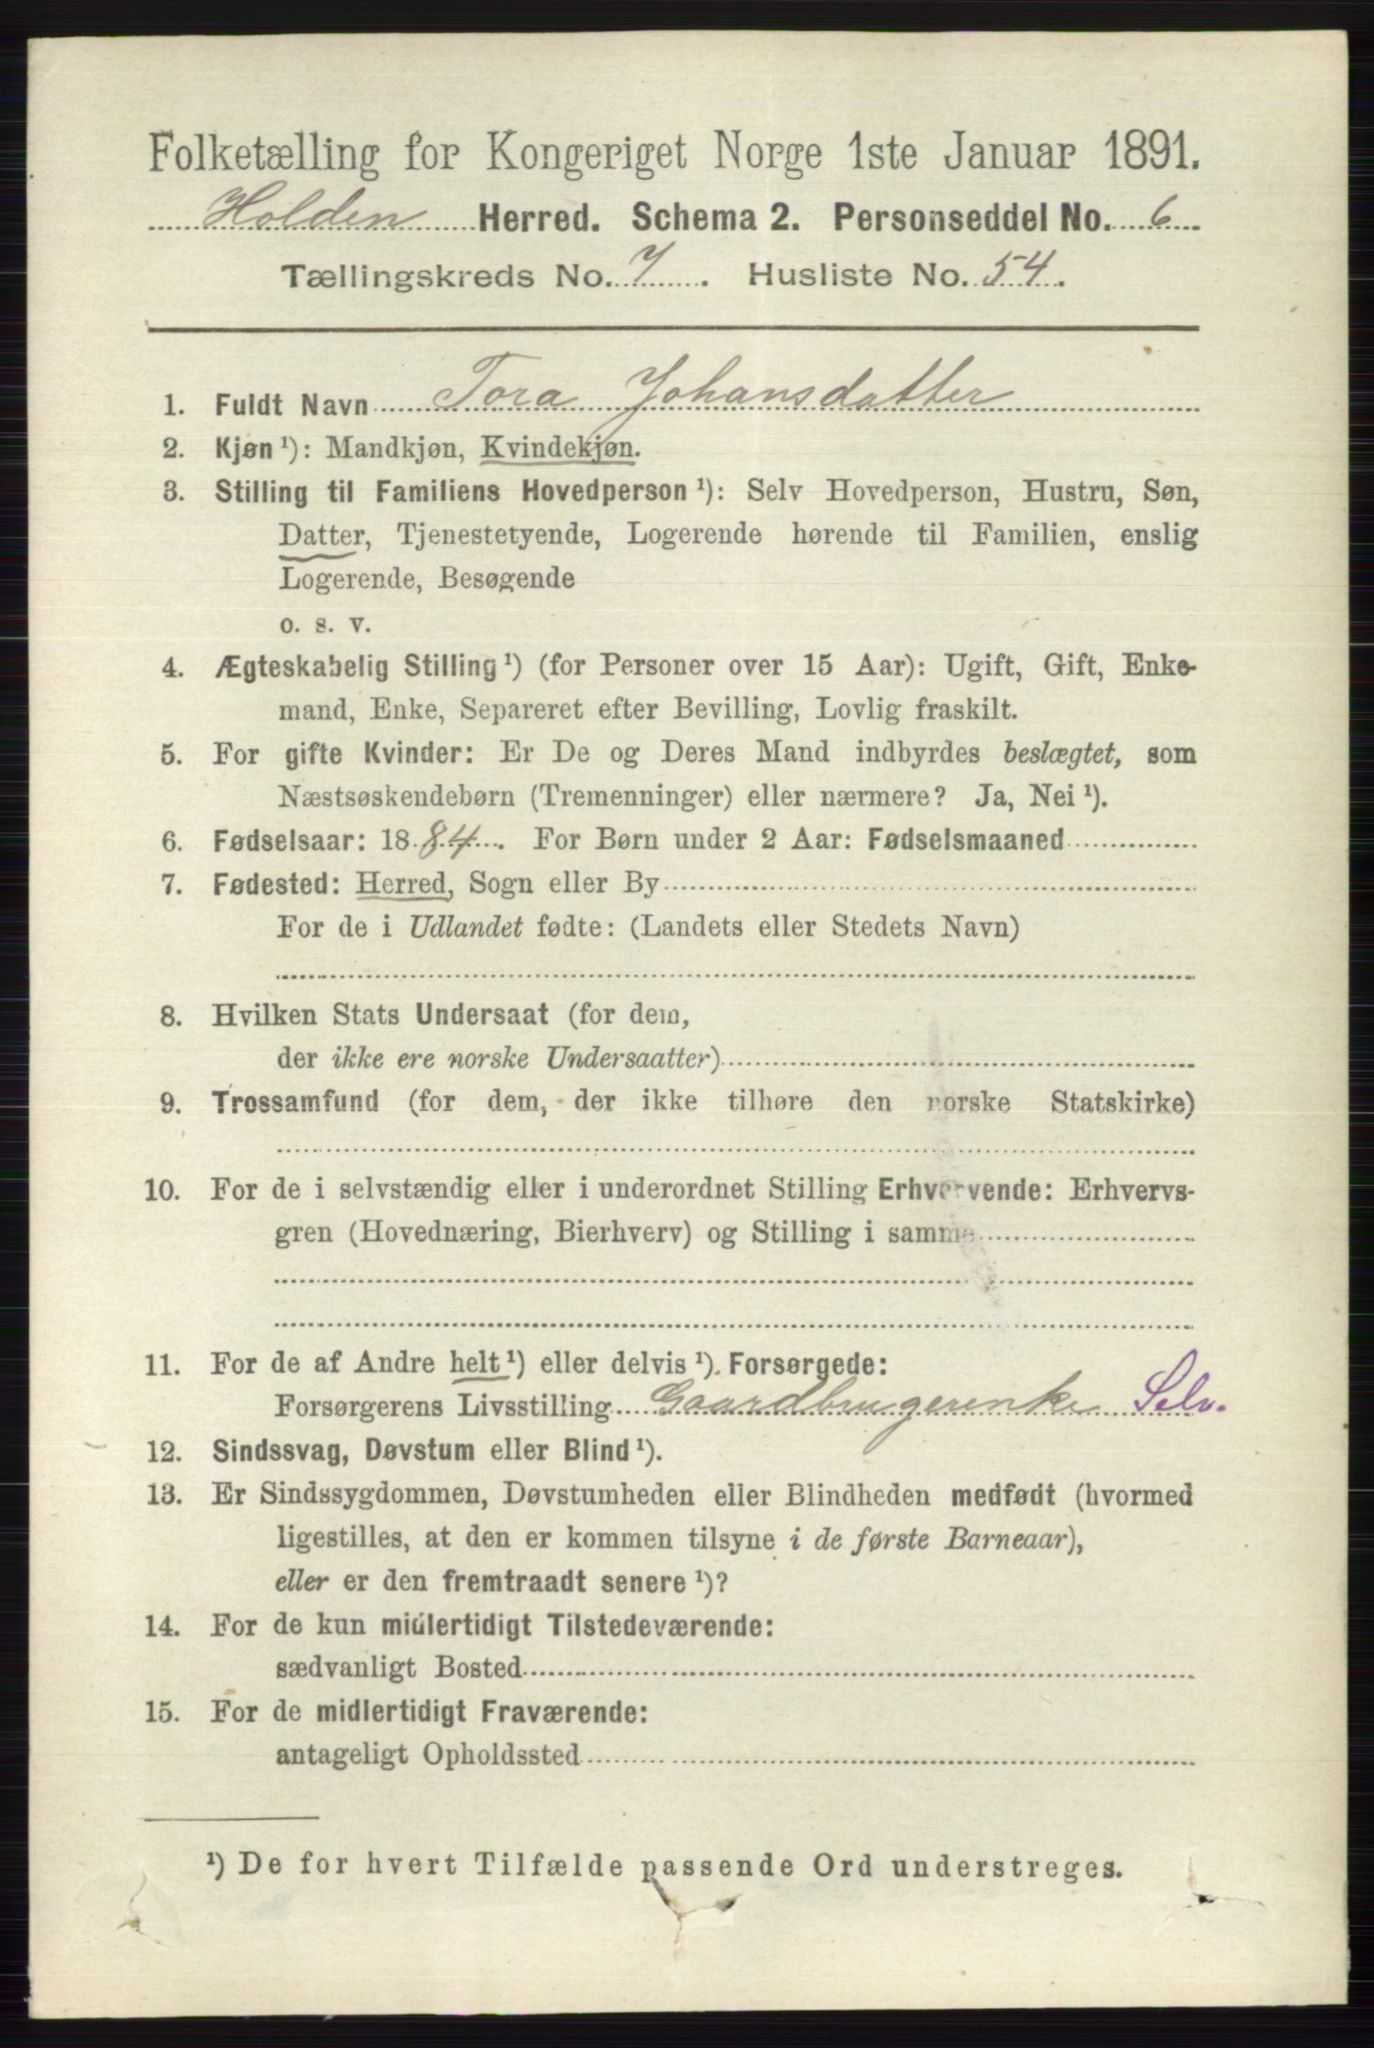 Folketælling for Kongeriget Norge 1ste Januar 1891.
Holden Herred. Schema 2. Personseddel No. 6
Tællingskreds No. 7. Husliste No. 54.
1. Fuldt Navn Tora Johansdatter
2. Kjøn ¹): Mandkjøn, Kvindekjøn.
3. Stilling til Familiens Hovedperson ¹): Selv Hovedperson, Hustru, Søn,
Datter, Tjenestetyende, Logerende hørende til Familien, enslig
Logerende, Besøgende
o. s. v.
4. Ægteskabelig Stilling ¹) (for Personer over 15 Aar): Ugift, Gift, Enke-
mand, Enke, Separeret efter Bevilling, Lovlig fraskilt.
5. For gifte Kvinder: Er De og Deres Mand indbyrdes beslægtet, som
Næstsøskendebørn (Tremenninger) eller nærmere? Ja, Nei ¹).
6. Fødselsaar: 1884. For Børn under 2 Aar: Fødselsmaaned
7. Fødested: Herred, Sogn eller By
For de i Udlandet fødte: (Landets eller Stedets Navn)
8. Hvilken Stats Undersaat (for dem,
der ikke ere norske Undersaatter)
9. Trossamfund (for dem, der ikke tilhøre den norske Statskirke)
10. For de i selvstændig eller i underordnet Stilling Erhvervende: Erhvervs-
gren (Hovednæring, Bierhverv) og Stilling i samme
11. For de af Andre helt ¹) eller delvis ¹). Forsørgede:
Forsørgerens Livsstilling Gaardbrugerenke Selv.
12. Sindssvag, Døvstum eller Blind ¹).
13. Er Sindssygdommen, Døvstumheden eller Blindheden medfødt (hvormed
ligestilles, at den er kommen tilsyne i de første Barneaar),
eller er den fremtraadt senere ¹)?
14. For de kun midlertidigt Tilstedeværende:
sædvanligt Bosted
15. For de midlertidigt Fraværende:
antageligt Opholdssted
¹) De for hvert Tilfælde passende Ord understreges.